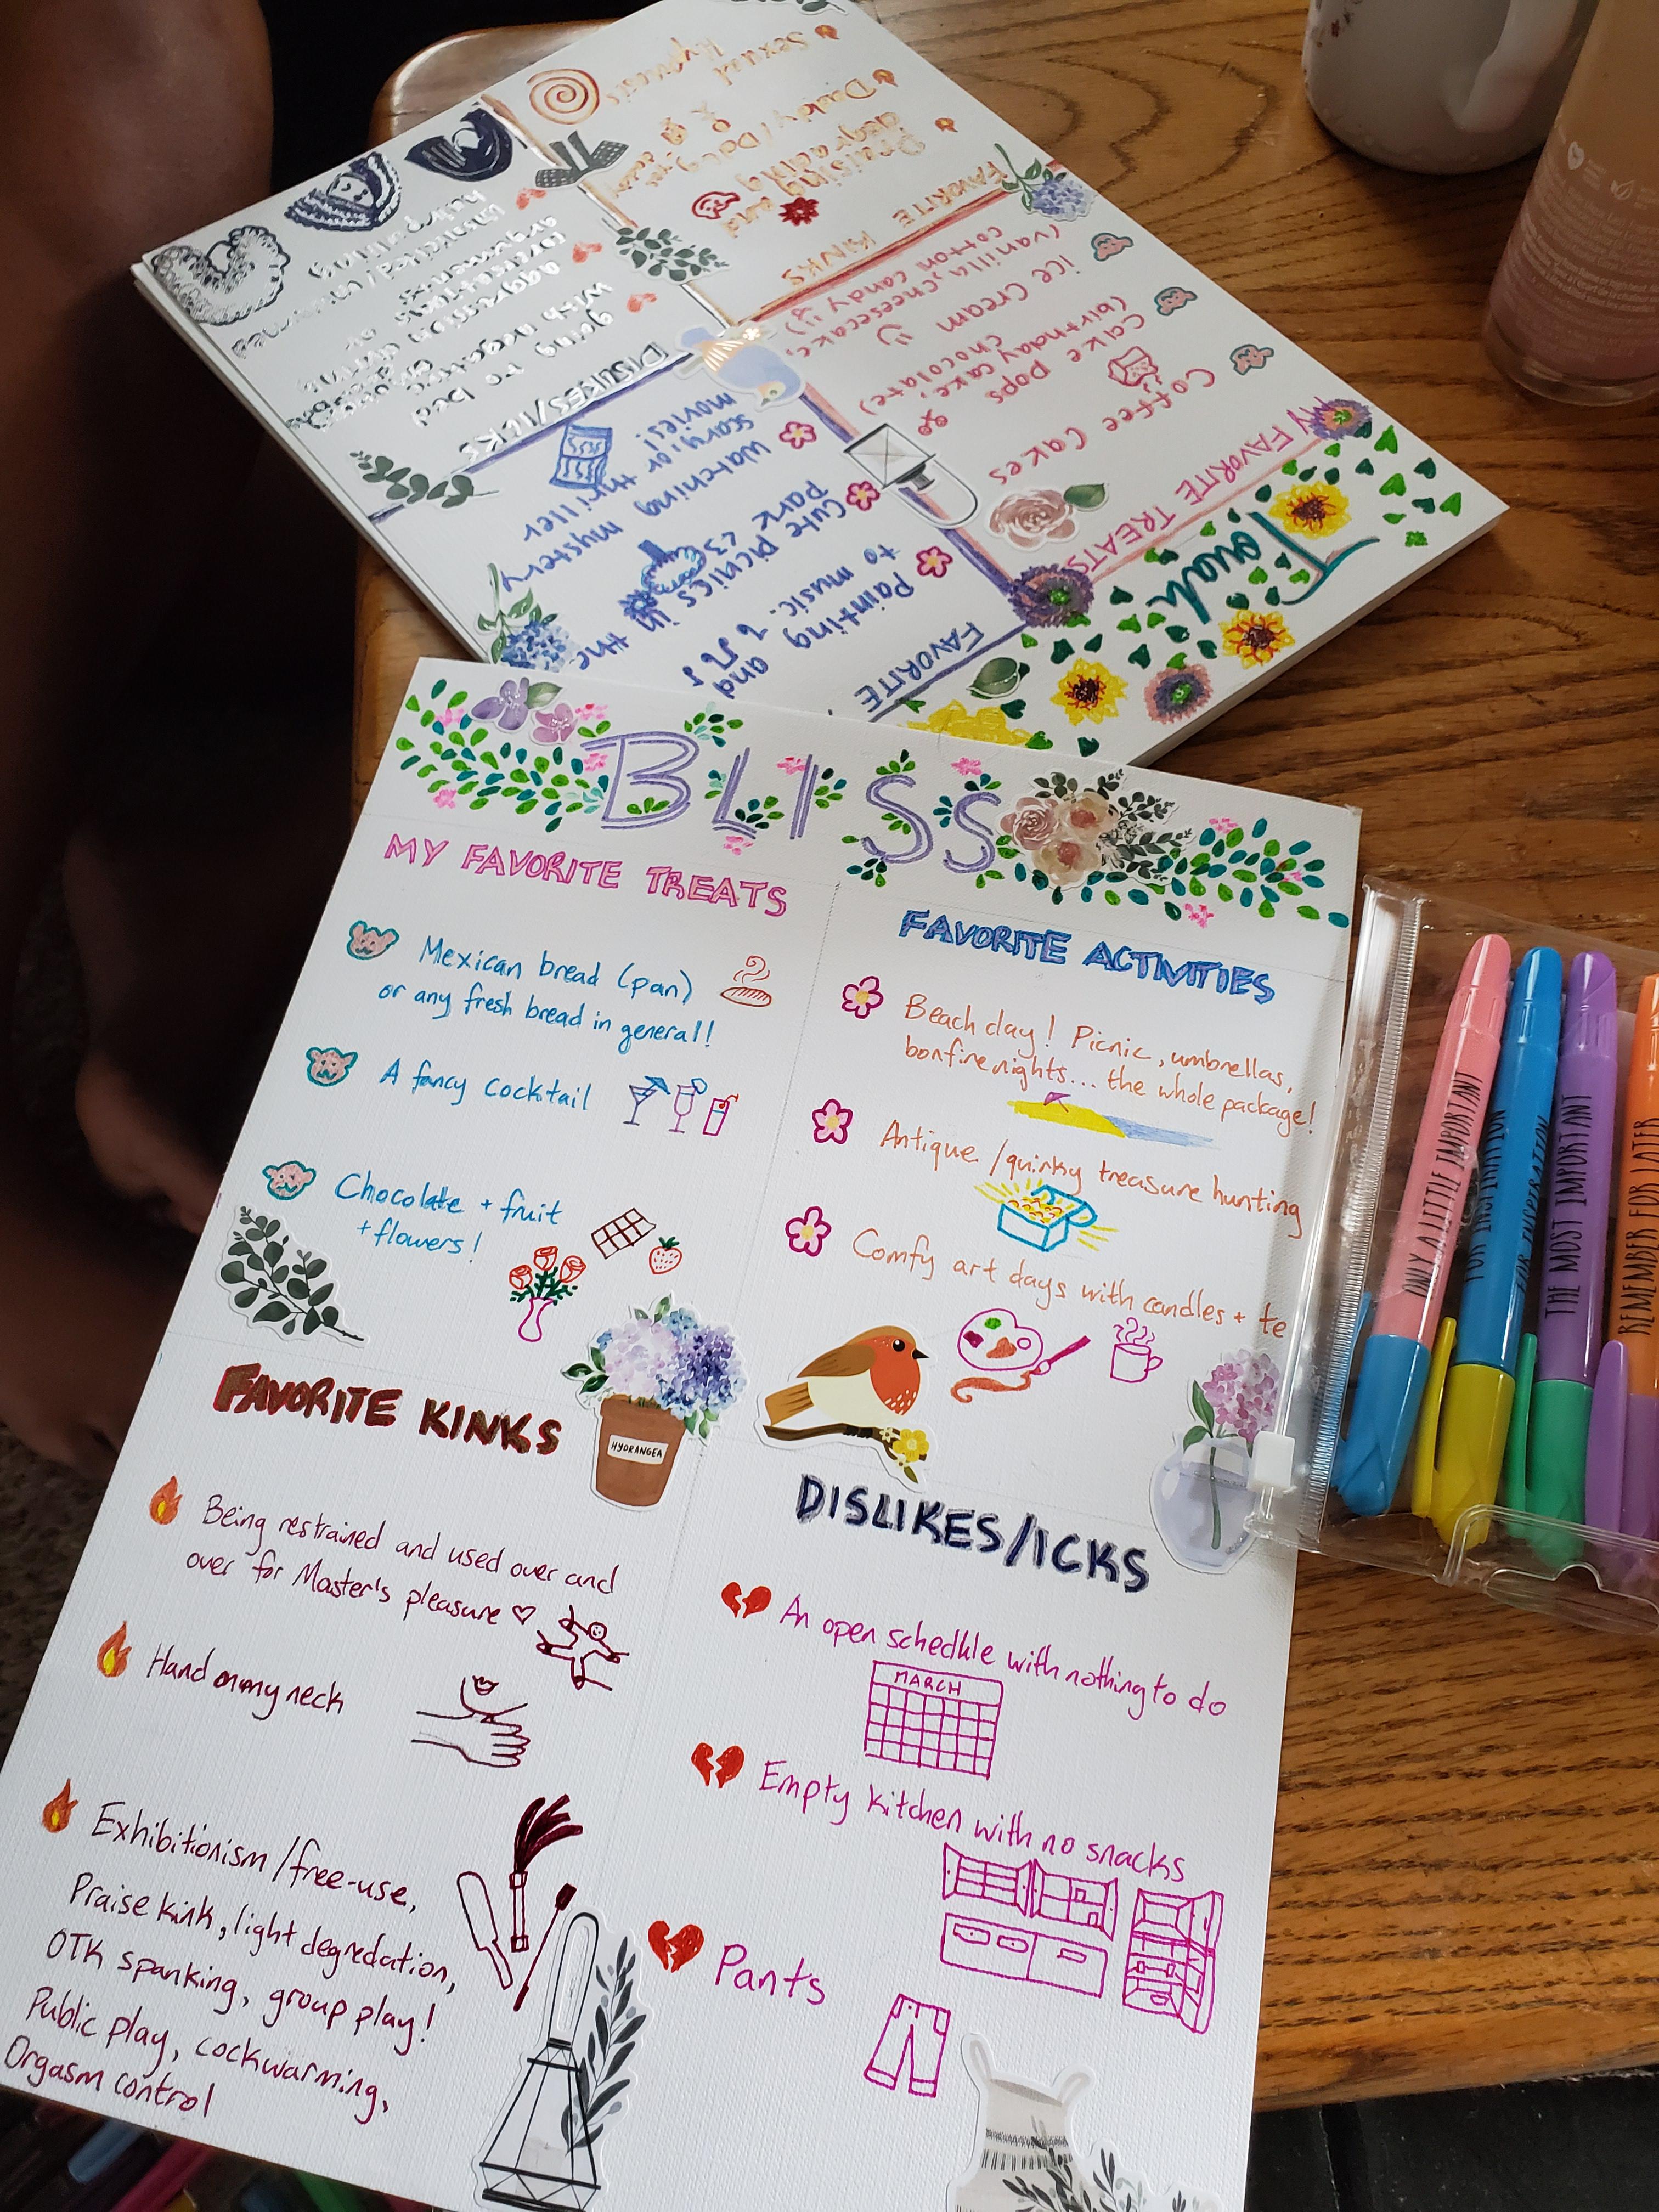 BLISS
MY FAVORITE TREATS
Mexican bread (pan)
or any fresh bread in general!
A fancy cocktail
Chocolate + fruit
+ flowers!
FAVORITE ACTIVITIES
Beach day! Picnic, umbrellas,
bonfire nights... the whole package!
Antique/quirky treasure hunting
Comfy art days with candles + te
HYDRANGEA
FAVORITE KINKS
Being restrained and used over and
over for Master's pleasure ♡
Hand on my neck
Exhibitionism/free-use,
Praise kink, light degredation,
OTK spanking, group play!
Public play, cockwarming,
Orgasm control
DISLIKES/ICKS
An open schedkle with nothing to do
MARCH
Empty kitchen with no snacks
Pants
MY FAVORITE TREATS
Coffee cakes
cake pops
(birthday cake,
chocolate)
ice cream
(vanilla, cheesecake,
cotton candy :))
FAVORITE
Painting and
to music.
Cute picnics in the
park <3
watching mystery
scary or thriller
movies!
FAVORITE KINKS
Praising and
degrading
Daddy/
Sexual
Hypnosis
DISLIKES/ICKS
going to bed
with negative
aggression
arguments
ONLY A LITTLE IMPORTANT
FOR INSPIRATION
FOR INSPIRATION
THE MOST IMPORTANT
REMEMBER FOR LATER